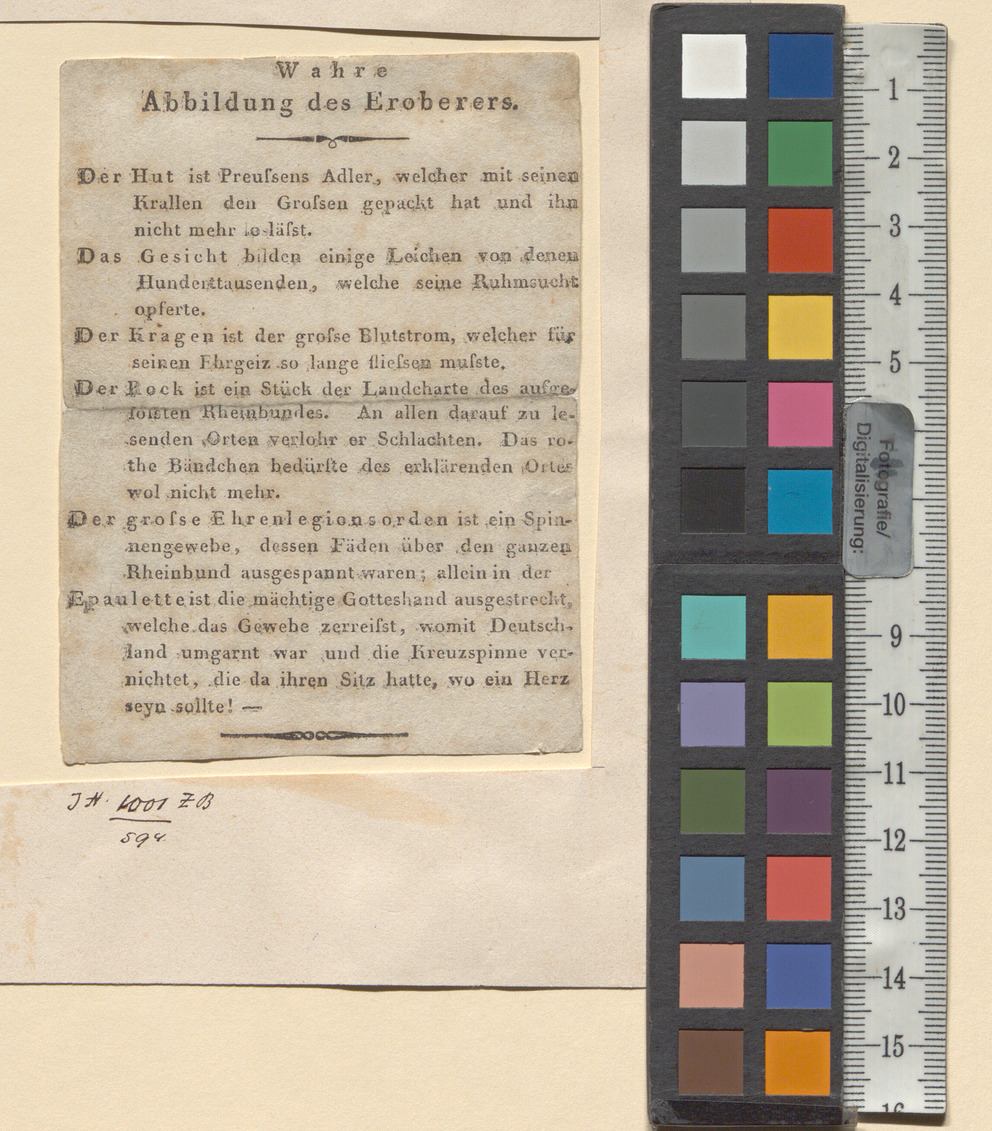 Wahre
Abbildung des Eroberers.
Der Hut ist Preuſsens Adler, welcher mit seinen
Krallen den Groſsen gepackt hat und ihn
nicht mehr loſläſst.
Das Gesicht bilden einige Leichen von denen
Hunderttausenden, welche seine Ruhmsucht
opferte.
Der Kragen ist der groſse Blutstrom, welcher für
seinen Ehrgeiz so lange flieſsen muſste.
Der Rock ist ein Stück der Landcharte des aufge-
löſsten Rheinbundes. An allen darauf zu le-
senden Orten verlohr er Schlachten. Das ro-
the Bändchen bedürfte des erklärenden Ortes
wol nicht mehr.
Der groſse Ehrenlegionsorden ist ein Spin-
nengewebe, dessen Fäden über den ganzen
Rheinbund ausgespannt waren; allein in der
Epaulette ist die mächtige Gotteshand ausgestreckt,
welche das Gewebe zerreiſst, womit Deutsch-
land umgarnt war und die Kreuzspinne ver-
nichtet, die da ihren Sitz hatte, wo ein Herz
seyn sollte! —
JH. 1001 ZB
598
1
2
3
4
5
Fotografie/
Digitalisierung:
9
10
11
12
13
14
15
16